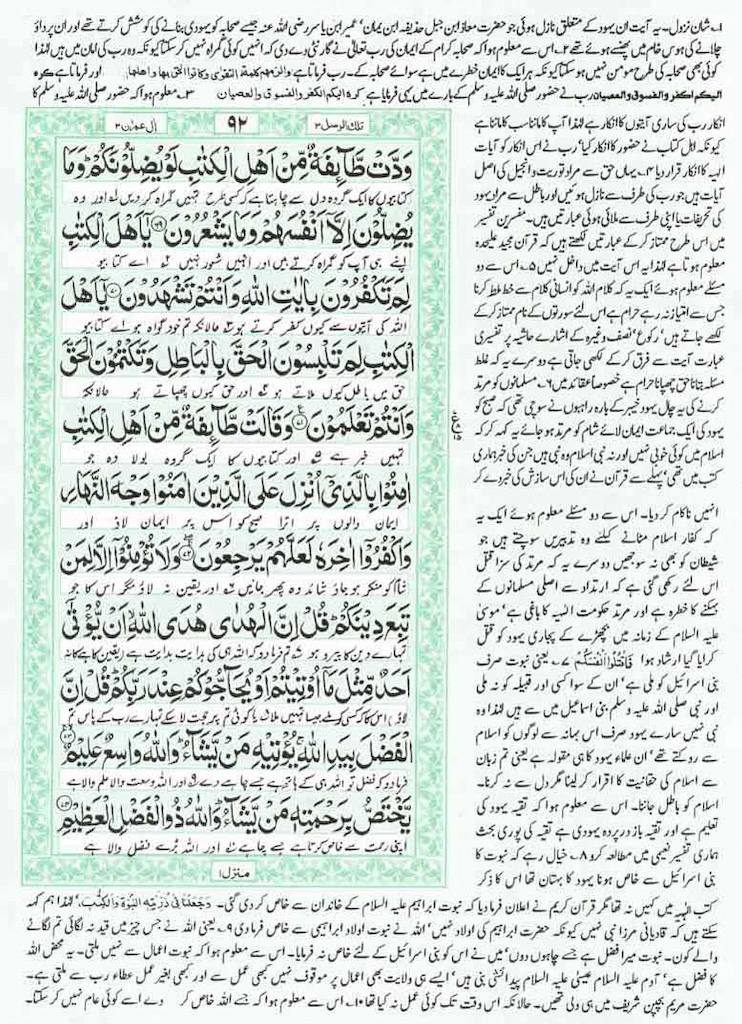 ۱۔ شان نزول۔ یہ آیت ان یہود کے متعلق نازل ہوئی جو حضرت معاذ ابن جبل حذیفہ ابن یمان' عمیر ابن یاسر رضی اللہ عنہ جیسے صحابہ کو یہودی بنانے کی کوشش کرتے تھے اور ان پر داؤ
چلانے کی ہوس خام میں پھنسے ہوئے تھے ۲۔ اس سے معلوم ہوا کہ صحابہ کرام کے ایمان کی رب تعالیٰ نے گارنٹی دے دی کہ انہیں کوئی گمراہ نہیں کر سکتا کیونکہ وہ رب کی امان میں ہیں لہٰذا
کوئی بھی صحابہ کی طرح مومن نہیں ہو سکتا کیونکہ ہر ایک کا ایمان خطرے میں ہے سوائے صحابہ کے۔ رب فرماتا ہے والزمهم كلمة التقوى وكانوا احق بها واهلها اور فرماتا ہے كره
اليكم الكفر والفسوق والعصيان رب نے حضور صلی اللہ علیہ وسلم کے بارے میں یہی فرمایا ہے كره اليكم الكفر والفسوق والعصيان ۳۔ معلوم ہوا کہ حضور صلی اللہ علیہ وسلم کا
تلك الرسل ۳
۹۲
اٰل عمرٰن ۳
وَدَّتْ طَّآئِفَةٌ مِّنْ اَهْلِ الْكِتٰبِ لَوْ يُضِلُّوْنَكُمْ ؕ وَمَا
کتابیوں کا ایک گروہ دل سے چاہتا ہے کہ کسی طرح تمہیں گمراہ کر دیں ۱ اور وہ
يُضِلُّوْنَ اِلَّاۤ اَنْفُسَهُمْ وَمَا يَشْعُرُوْنَ ﴿۶۹﴾ يٰۤاَهْلَ الْكِتٰبِ
اپنے ہی آپ کو گمراہ کرتے ہیں اور انہیں شعور نہیں ۲ اے کتابیو
لِمَ تَكْفُرُوْنَ بِاٰيٰتِ اللّٰهِ وَاَنْتُمْ تَشْهَدُوْنَ ﴿۷۰﴾ يٰۤاَهْلَ
اللہ کی آیتوں سے کیوں کفر کرتے ہو ۳ حالانکہ تم خود گواہ ہو اے کتابیو
الْكِتٰبِ لِمَ تَلْبِسُوْنَ الْحَقَّ بِالْبَاطِلِ وَتَكْتُمُوْنَ الْحَقَّ
حق میں باطل کیوں ملاتے ہو ۴ اور حق کیوں چھپاتے ہو حالانکہ
وَاَنْتُمْ تَعْلَمُوْنَ ﴿۷۱﴾ وَقَالَتْ طَّآئِفَةٌ مِّنْ اَهْلِ الْكِتٰبِ
تمہیں خبر ہے ۵ اور کتابیوں کا ایک گروہ بولا وہ جو
اٰمِنُوْا بِالَّذِيْۤ اُنْزِلَ عَلَى الَّذِيْنَ اٰمَنُوْا وَجْهَ النَّهَارِ
ایمان والوں پر اترا صبح کو اس پر ایمان لاؤ اور
وَاكْفُرُوْۤا اٰخِرَهٗ لَعَلَّهُمْ يَرْجِعُوْنَ ﴿۷۲﴾ وَلَا تُؤْمِنُوْۤا اِلَّا لِمَنْ
شام کو منکر ہو جاؤ شاید وہ پھر جائیں ۶ اور یقین نہ لاؤ مگر اس کا جو
تَبِعَ دِيْنَكُمْ ؕ قُلْ اِنَّ الْهُدٰى هُدَى اللّٰهِ ۙ اَنْ يُّؤْتٰۤى
تمہارے دین کا پیرو ہو تم فرما دو کہ اللہ ہی کی ہدایت ہدایت ہے یقین کاہے کا نہ
اَحَدٌ مِّثْلَ مَاۤ اُوْتِيْتُمْ اَوْ يُحَآجُّوْكُمْ عِنْدَ رَبِّكُمْ ؕ قُلْ اِنَّ
لاؤ اس کا کہ کسی کو ملے جیسا تمہیں ملا یا کوئی تم پر حجت لا سکے تمہارے رب کے پاس تم
الْفَضْلَ بِيَدِ اللّٰهِ ۚ يُؤْتِيْهِ مَنْ يَّشَآءُ ؕ وَاللّٰهُ وَاسِعٌ عَلِيْمٌ ﴿۷۳﴾
فرما دو کہ فضل تو اللہ ہی کے ہاتھ ہے جسے چاہے دے ۹ اور اللہ وسعت والا علم والا ہے
يَّخْتَصُّ بِرَحْمَتِهٖ مَنْ يَّشَآءُ ؕ وَاللّٰهُ ذُو الْفَضْلِ الْعَظِيْمِ ﴿۷۴﴾
اپنی رحمت سے خاص کرتا ہے جسے چاہے ۱۰ اور اللہ بڑے فضل والا ہے
منزل ۱
انکار رب کی ساری آیتوں کا انکار ہے لہٰذا آپ کا ماننا سب کا ماننا ہے
کیونکہ اہل کتاب نے حضور کا انکار کیا' رب نے اس انکار کو آیات
الٰہیہ کا انکار قرار دیا ۴۔ یہاں حق سے مراد توریت و انجیل کی اصل
آیات ہیں جو رب کی طرف سے نازل ہوئیں اور باطل سے مراد یہود
کی تحریفات یا اپنی طرف سے ملائی ہوئی عبارتیں ہیں۔ مفسرین تفسیر
میں اس طرح ممتاز کر کے عبارتیں لکھتے ہیں کہ قرآن مجید علیحدہ
معلوم ہوتا ہے لہٰذا یہ اس آیت میں داخل نہیں ۵۔ اس سے دو
مسئلے معلوم ہوئے ایک یہ کہ کلام اللہ کو انسانی کلام سے خلط ملط کرنا
جس سے امتیاز نہ رہے حرام ہے اس لئے سورتوں کے نام ممتاز کر کے
لکھے جاتے ہیں' رکوع' نصف وغیرہ کے اشارے حاشیہ پر تفسیری
عبارت آیت سے فرق کر کے لکھی جاتی ہے دوسرے یہ کہ غلط
مسئلہ بتانا حق چھپانا حرام ہے خصوصاً عقائد میں ۶۔ مسلمانوں کو مرتد
کرنے کی یہ چال یہود خیبر کے بارہ راہبوں نے سوچی تھی کہ صبح کو
یہود کی ایک جماعت ایمان لائے شام کو مرتد ہو جائے یہ کہہ کر کہ
اسلام میں کوئی خوبی نہیں اور نہ نبی اسلام وہ نبی ہیں جن کی خبر ہماری
کتب میں تھی' پہلے سے قرآن نے ان کی اس سازش کی خبر دے کر
انہیں ناکام کر دیا۔ اس سے دو مسئلے معلوم ہوئے ایک یہ
کہ کفار اسلام مٹانے کیلئے وہ تدبیریں سوچتے ہیں جو
شیطان کو بھی نہ سوجھیں دوسرے یہ کہ مرتد کی سزا قتل
اس لئے رکھی گئی ہے کہ ارتداد سے اصلی مسلمانوں کے
بہکنے کا خطرہ ہے اور مرتد حکومت الٰہیہ کا باغی ہے' موسیٰ
علیہ السلام کے زمانہ میں بچھڑے کے پجاری یہود کو قتل
کرایا گیا ارشاد ہوا فَاقْتُلُوْا اَنْفُسَكُمْ ۷۔ یعنی نبوت صرف
بنی اسرائیل کو ملی ہے' ان کے سوا کسی اور قبیلہ کو نہ ملی
اور نبی صلی اللہ علیہ وسلم بنی اسماعیل میں سے ہیں لہٰذا وہ
نبی نہیں سارے یہود اس بہانہ سے لوگوں کو اسلام
سے روکتے تھے' ان علماء یہود کا ہی مقولہ ہے یعنی تم زبان
سے اسلام کی حقانیت کا اقرار کر لینا مگر دل سے نہ کرنا۔
اسلام کو باطل جاننا۔ اس سے معلوم ہوا کہ تقیہ یہود کی
تعلیم ہے اور تقیہ باز در پردہ یہودی ہے تقیہ کی پوری بحث
ہماری تفسیر نعیمی میں مطالعہ کرو ۸۔ خیال رہے کہ نبوت کا
بنی اسرائیل سے خاص ہونا یہود کا بہتان تھا اس کا ذکر
کتب الٰہیہ میں کہیں نہ تھا مگر قرآن کریم نے اعلان فرما دیا کہ نبوت ابراہیم علیہ السلام کے خاندان سے خاص کر دی گئی۔ وَجَعَلْنَا فِيْ ذُرِّيَّتِهِ النُّبُوَّةَ وَالْكِتٰبَ' لہٰذا ہم کہہ
سکتے ہیں کہ قادیانی مرزا نبی نہیں کیونکہ حضرت ابراہیم کی اولاد نہیں' اللہ نے نبوت اولاد ابراہیمی سے خاص فرما دی ۹۔ یعنی اللہ نے جس چیز میں قید نہ لگائی تم لگانے
والے کون۔ نبوت میرا فضل ہے جسے چاہوں دوں' میں نے اس کو بنی اسرائیل کے لئے خاص نہ فرمایا۔ اس سے معلوم ہوا کہ نبوت اعمال سے نہیں ملتی۔ یہ محض اللہ
کا فضل ہے' آدم علیہ السلام عیسیٰ علیہ السلام پیدائشی نبی ہیں' ایسے ہی ولایت بھی اعمال پر موقوف نہیں کبھی عمل سے اور کبھی بغیر عمل عطاء رب سے ملتی ہے۔
حضرت مریم بچپن شریف میں ہی ولی تھیں۔ حالانکہ اس وقت تک کوئی عمل نہ کیا تھا ۱۰۔ اس سے معلوم ہوا کہ جسے اللہ خاص کر دے اسے کوئی عام نہیں کر سکتا۔